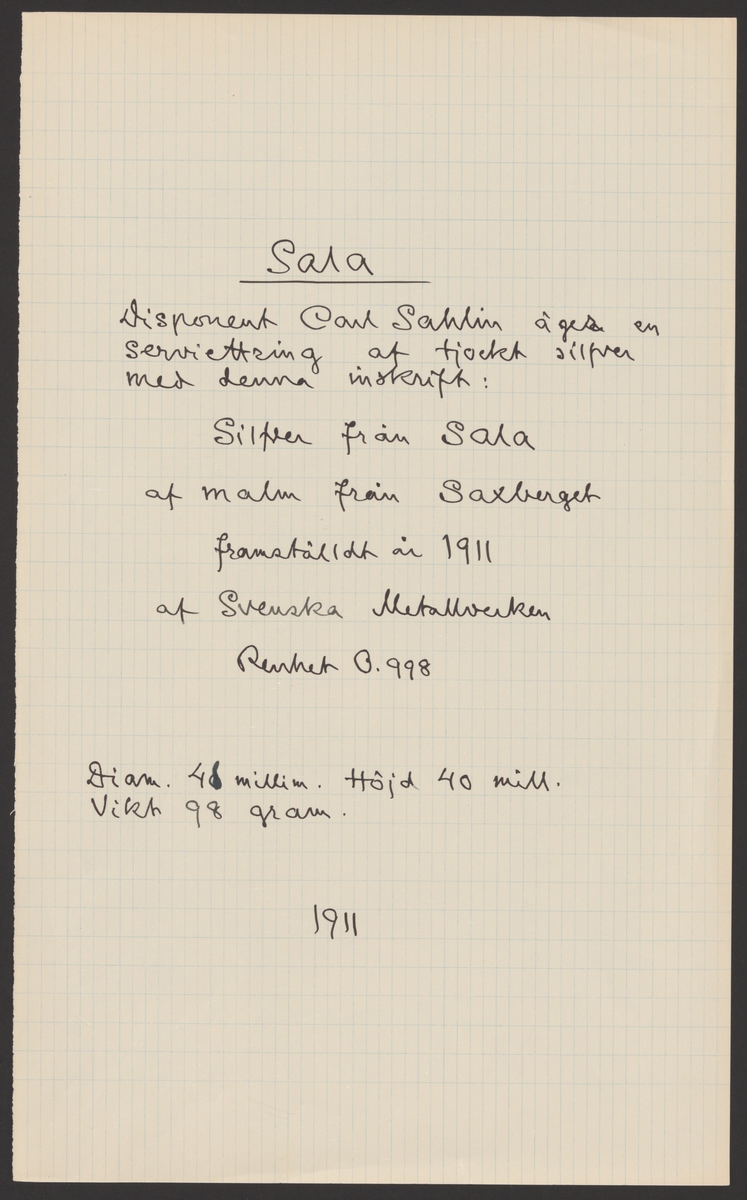 Sala
Disponent Carl Sahlin äger en
serviettring af tjockt silfver
med denna inskrift:
Silfver från Sala
af malm från Saxberget
framställdt år 1911
af Svenska Metallverken
Renhet 0.998
Diam. 46 millim. Höjd 40 mill.
Vikt 98 gram.
1911